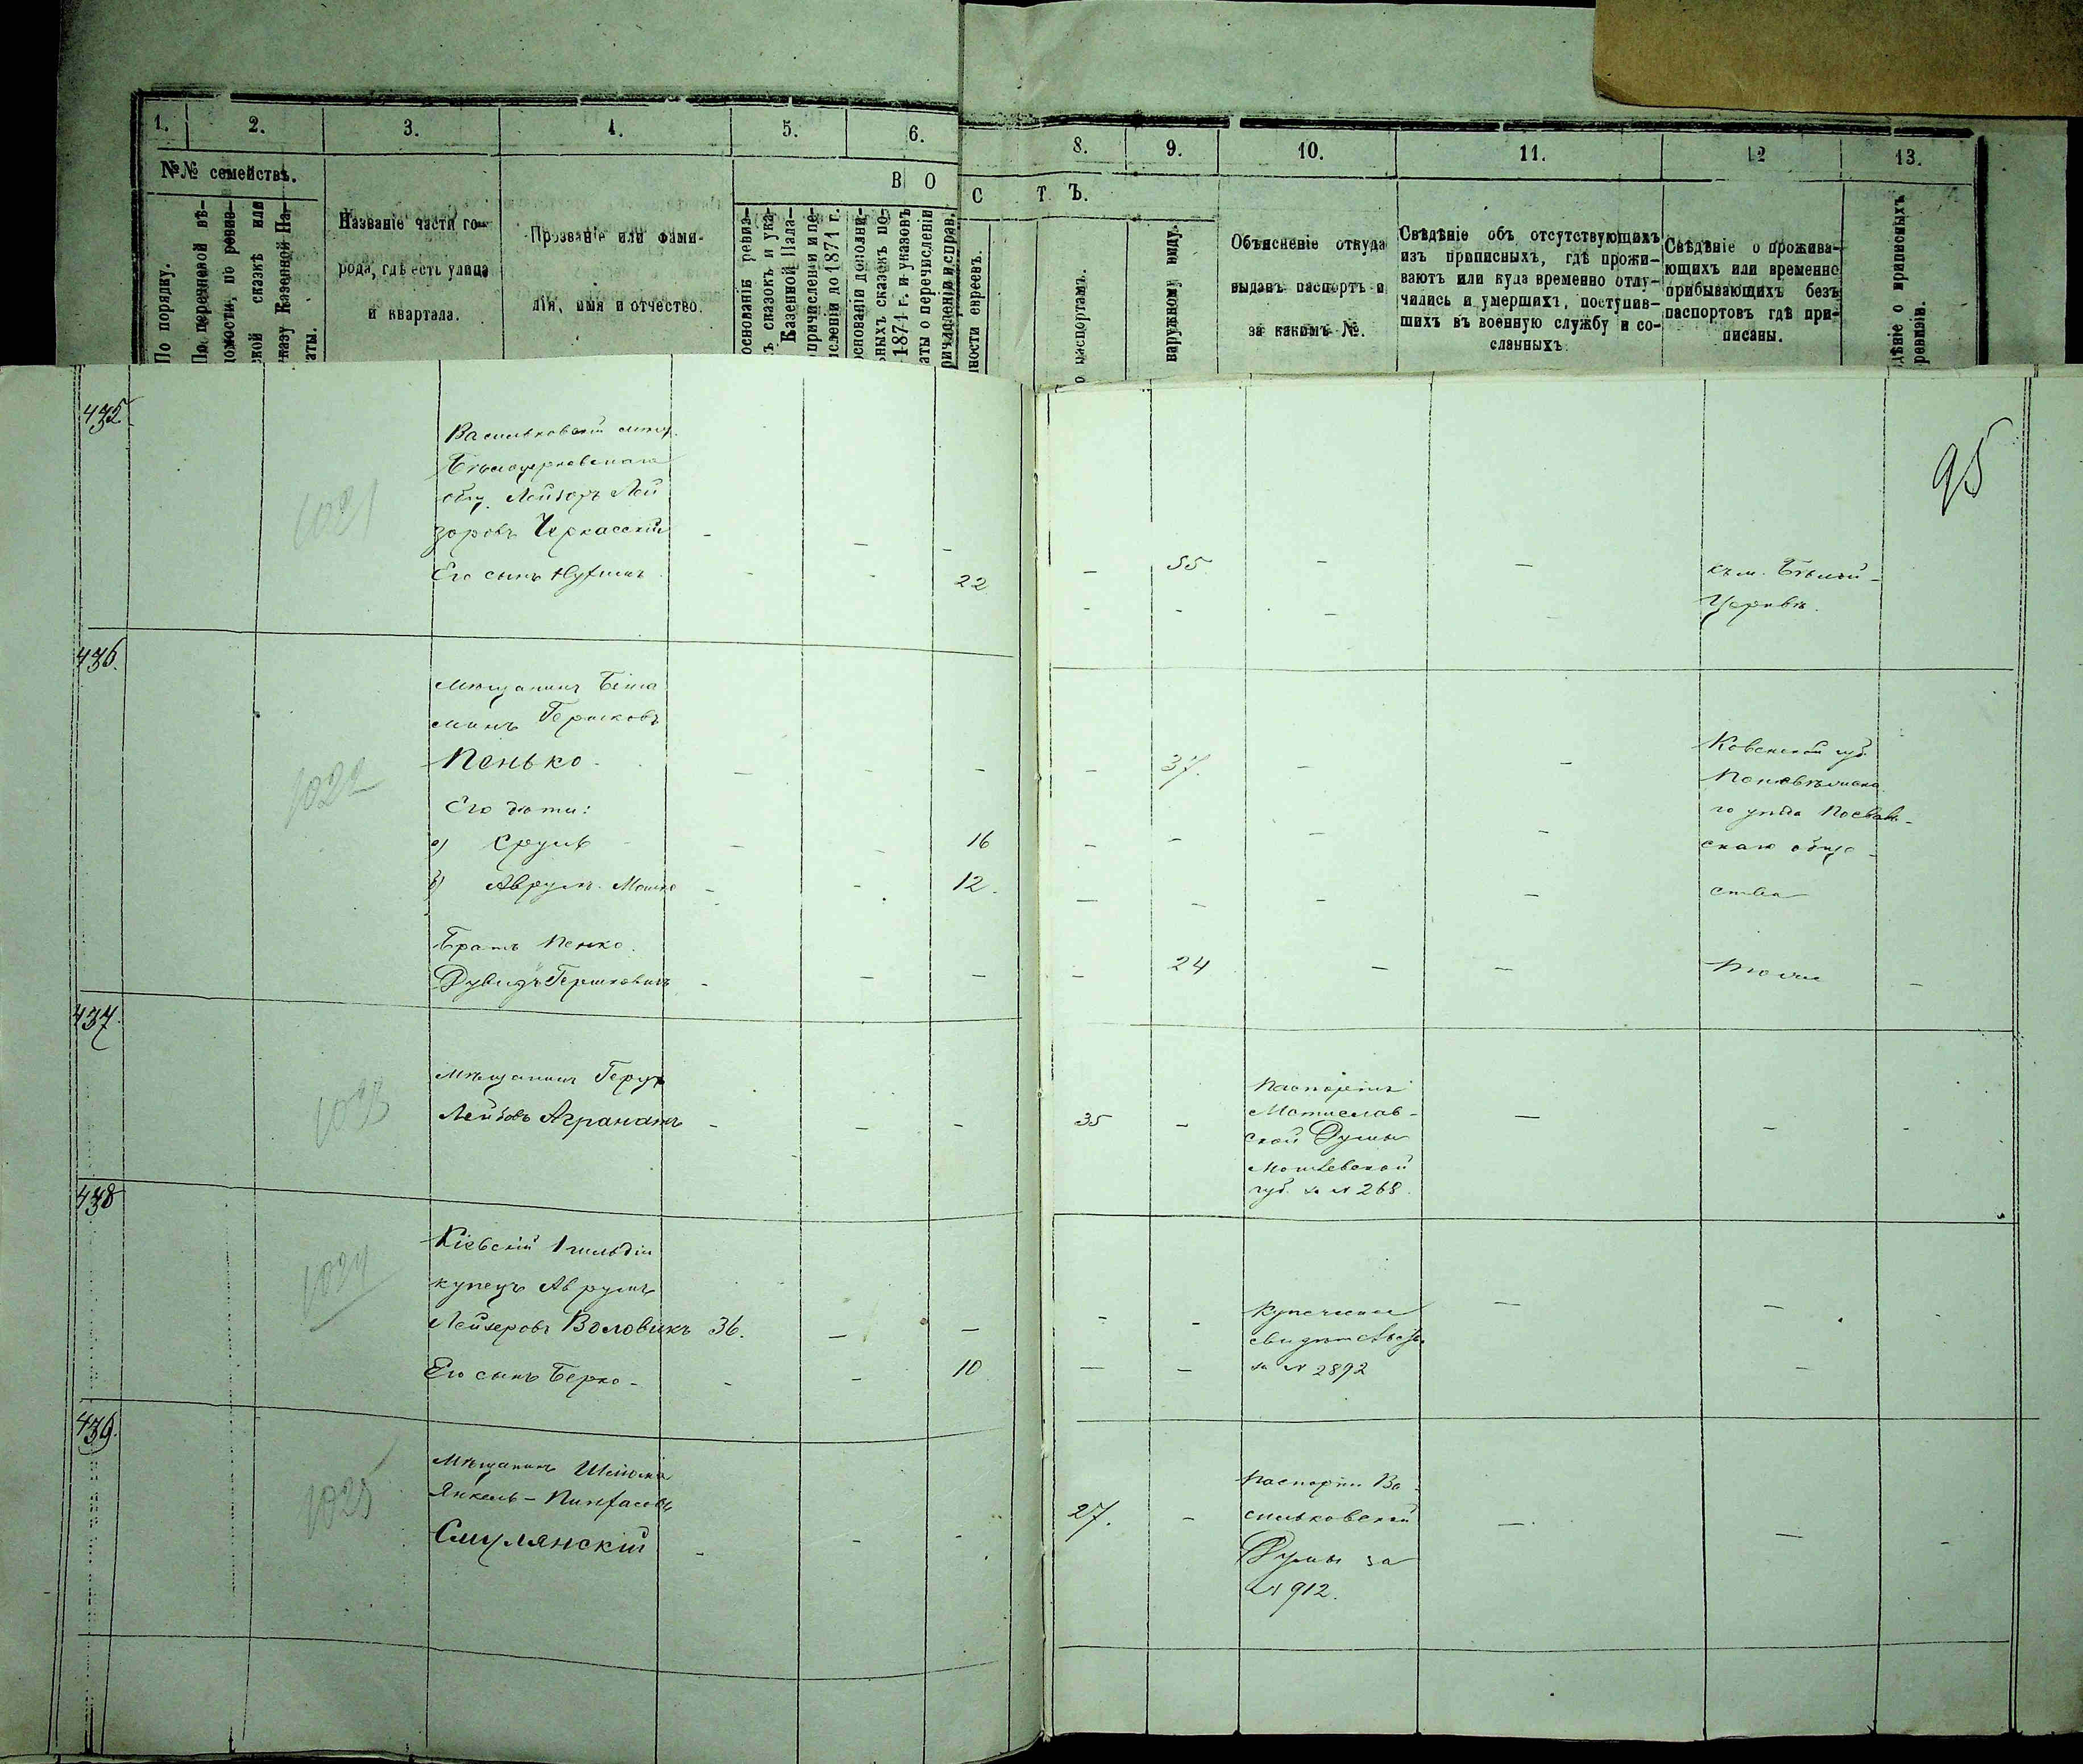 1.
2.
3.
4.
5.
6.
8.
9.
10.
11.
12
13.
№№ семействъ.
В О
С Т Ъ.
По порядку.
По перечневой вѣ-
домости, по ревиз-
ской сказкѣ или
указу Казенной Па-
латы.
Названіе части го-
рода, гдѣ есть улица
и квартала.
Прозваніе или фами-
лія, имя и отчество.
основаніѣ ревиз-
ъ сказокъ и ука-
Казенной Пала-
причисленіи и пе-
численіи до 1871 г.
основаніи дополни-
ныхъ сказокъ по-
1871 г. и указовъ
аты о перечисленіи
ричисленіи и справ.
ности евреевъ.
о паспортамъ.
наружному виду.
Объясненіе откуда
выданъ паспортъ и
за какимъ №.
Свѣдѣніе объ отсутствующихъ
изъ приписныхъ, гдѣ прожи-
ваютъ или куда временно отлу-
чились и умершихъ, поступив-
шихъ въ военную службу и со-
сланныхъ.
Свѣдѣніе о прожива-
ющихъ или временно
прибывающихъ безъ
паспортовъ гдѣ при-
писаны.
дѣніе о приписныхъ
ревизіи.
95
435.
1021
Васильковскій мѣщ.
Бѣлоцерковскаго
общ. Лейзоръ Лей
зоровъ Черкасскій - - - - 55 - -
Его сынъ Нухимъ - - 22 - - - -
къ м. Бѣлой-
Церквѣ.
436.
1022
Мѣщанинъ Бенia
минъ Гершковъ
Пенько - - - - 37. - -
Его дѣти:
а) Сруль - - 16 - - - -
б) Аврумъ-Мошко - - 12. - - - -
Ковенской губ.
Поневѣжска
го уѣзда
скаго обще-
ства
Братъ Пенко
Дувидъ Гершковичъ - - - - 24 - - Тоже -
437.
1023
Мѣщанинъ Герцъ
Лейбовъ Агранатъ - - - 35 - - - -
Паспортъ
Мстислав-
ской Думы
Могилевской
губ. за № 268.
438
1024
Кіевскій 1 гильдіи
купецъ Аврумъ
Лейзеровъ Воловикъ 36. - - - - - - -
Его сынъ Берко - - - 10 - - -
Купеческое
свидѣтельство
за № 2892
439.
1025
Мѣщанинъ Шлiома
Янкель-Пинхасовъ
Смулянскій - - - 27. - - - -
Паспортъ Ва-
сильковской
Думы за
№ 912.